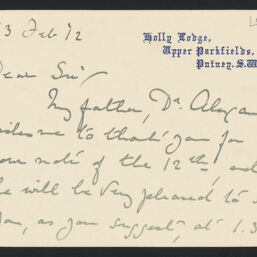 3 Feb 12
Holly Lodge,
Upper Parkfields,
Putney. S.W
Dear Sir
My father, Dr. Alexan
me to thank you for
our note of the 12th, and
he will be very pleased to
you, as you suggest, at 1.3